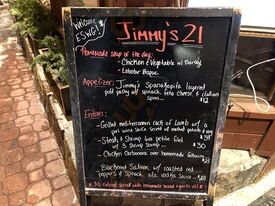 Welcome
ESWG!
Jimmy's 21
Homemade soup of the day:
- Chicken & Vegetable w/ Barley
- Lobster Bisque
Appetizer: Jimmy's Spanakopita layered
puff pastry w/ spinach, feta cheese, & italian
spices $12
Entrees:
- Grilled mediterranean rack of lamb w/ a
port wine sauce served w/ mashed potatoes & veg
$34
- Steak & Shrimp 6oz petite filet
w/ 3 shrimp scampi $30
- Chicken Carbonara over homemade fettuccine
$25
- Blackened Salmon w/ roasted red
peppers & spinach, ala vodka sauce
* All entrees served with homemade bread & garlic oil *